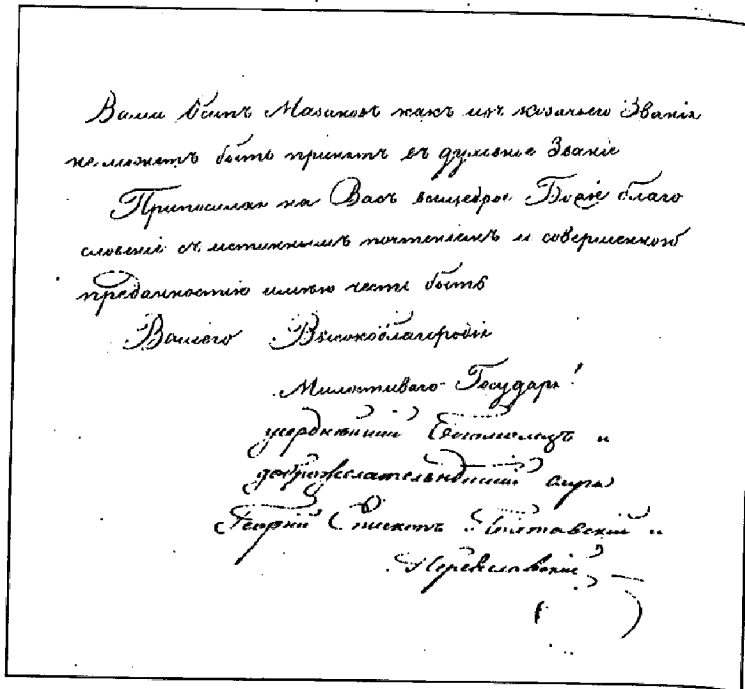 Вами быть Мазаковъ какъ изъ козачьего Званія
не можетъ быть принятъ въ духовное Званіе
Призывая на Васъ всещедрое Божіе благо
словеніе съ истиннымъ почтеніемъ и совершенною
преданностію имѣю честь быть
Вашего Высокоблагородія
Милостиваго Государя!
усерднѣйшій Богомолецъ и
доброжелательнѣйшій слуга
Георгій Епископъ Полтавскій и
Переяславскій